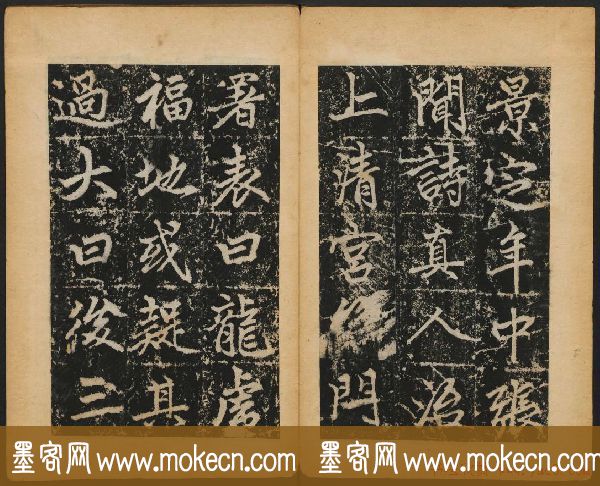 景定年中張
聞詩真人治
上清宮作門
署表曰龍虎
福地或疑其
過大曰後三
墨客网 www.mokecn.com
墨客网 www.mokecn.com